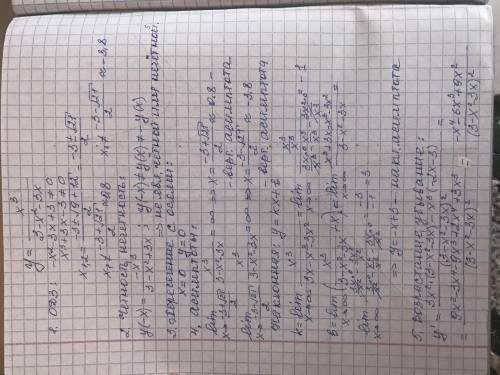 y = x³/(3-x²-3x)
1. ОДЗ: -x²-3x+3≠0
x²+3x-3≠0
x₁,₂ = (-3±√(9+12))/2 = (-3±√21)/2
x₁≠(-3+√21)/2≈0,8 x₂≠(-3-√21)/2≈-3,8
2. четность, нечетность:
y(-x) = -x³/(3-x²+3x); y(-x)≠y(x)≠-y(x)
⇒ не явл. четной или нечётной.
3. пересечение с осями:
x=0 y=0
4. асимптоты:
lim x→(-3+√21)/2 x³/(3-x²-3x) = ∞ ⇒ x = (-3+√21)/2 ≈ 0,8 -
- верт. асимптота
lim x→(-3-√21)/2 x³/(3-x²-3x) = ∞ ⇒ x = (-3-√21)/2 ≈ -3,8
- верт. асимптота
наклонная: y = kx+b
k = lim x→∞ x³/(3x-x³-3x²) = lim x→∞ = -1
b = lim x→∞ (x³/(3-x²-3x) + x) = lim x→∞ (x³+3x-x³-3x²)/(3-x²-3x) =
lim x→∞ = -3/-1 = 3
⇒ y = -x+3 - накл. асимптота
5. возрастание, убывание:
y' = (3x²(3-x²-3x)-x³(-2x-3))/(3-x²-3x)² =
= (9x²-3x⁴-9x³+2x⁴+3x³)/(3-x²-3x)² = (-x⁴-6x³+9x²)/(3-x²-3x)²